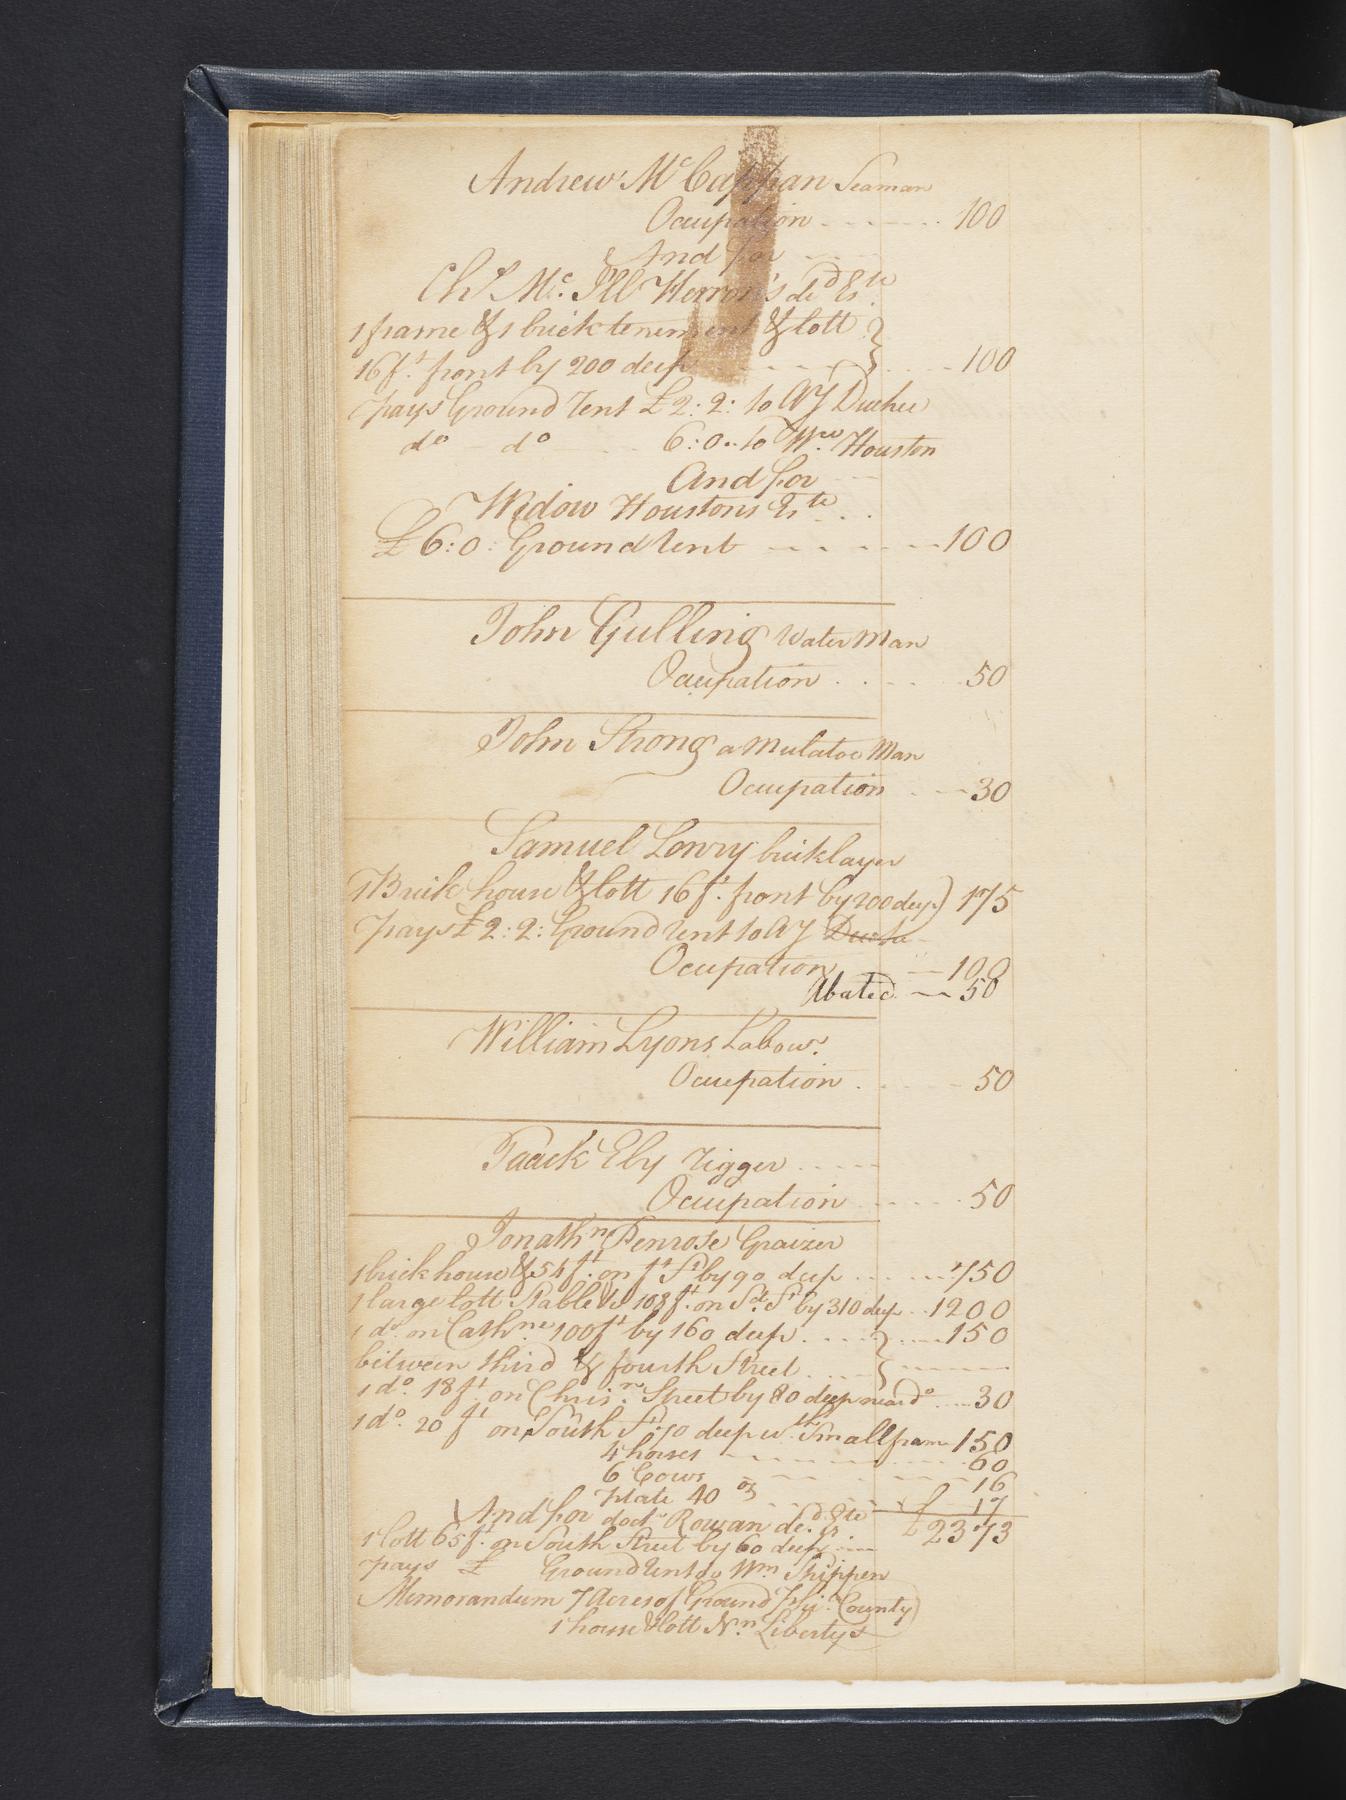 Andrew Mc Cappan Seaman
Ocupation 100
And for
Chs Mc. Ill Herron's decd Este
1 frame & 1 brick tenement & lott
16 ft. front by 200 deep 100
pays Ground rent £ 2:2: to AJ Duchee
do do 6:0.. to Wm. Houston
And for
Widow Houstons Este
£ 6:0: Ground rent 100
John Gulling Water Man
Ocupation 50
John Strong a Mulatoe Man
Ocupation 30
Samuel Lowry bricklayer
1 Brick house & lott 16 ft. front by 200 deep) 175
pays £ 2:2: Ground rent to AJ
Ocupation 100
Abated 50
William Lyons Labour.
Ocupation 50
Isaack Eby rigger
Ocupation 50
Jonathn Penrose Graizer
1 brick house & 54 ft. on ft St by 90 deep 750
1 large lott Stable &c 108 ft. on Sd. St by 310 deep 1200
1 do. on Cathne 100 ft by 160 deep 150
between third & fourth Street
1 do. 18 ft on Chrisn Street by 80 deep near do 30
1 do. 20 ft on South St. 90 deep wth Small fram 150
4 horses 60
6 Cows 16
plate 40 oz 17
And for doctr Rowan decd Este £ 2373
1 lott 65 ft. on South Street by 60 deep
pays £ Ground rent to Wm Shippen
Memorandum 7 Acres of Ground County
1 house & lott Nn. Libertys